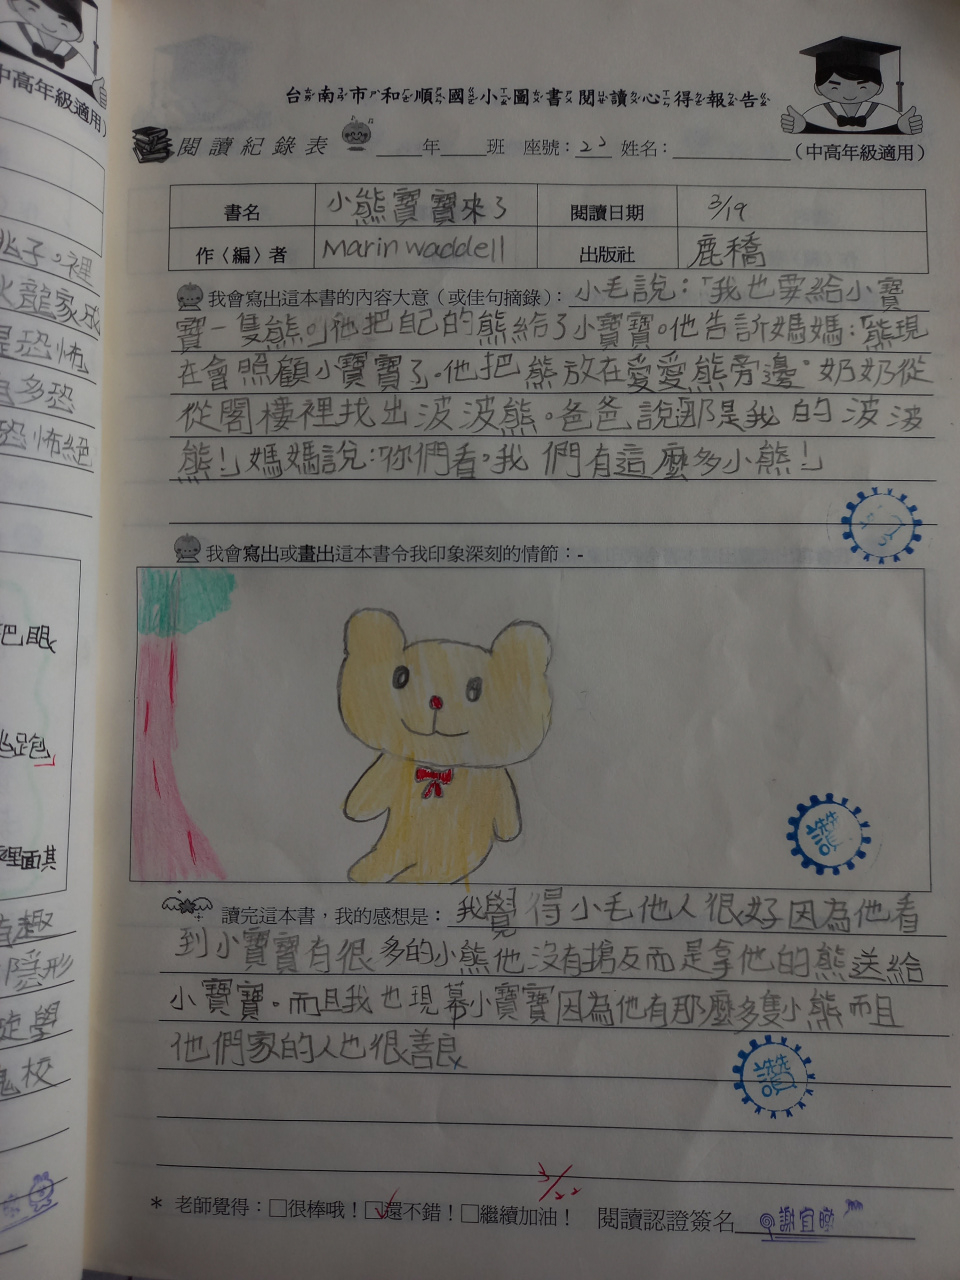 台南市和順國小圖書閱讀心得報告
閱讀紀錄表 ____年____班 座號：23 姓名：________（中高年級適用）
書名 小熊寶寶來了 閱讀日期 3/19
作〈編〉者 Marin waddell 出版社 鹿橋
我會寫出這本書的內容大意（或佳句摘錄）：小毛說：「我也要給小寶
寶一隻熊。」他把自己的熊給了小寶寶。他告訴媽媽：「熊現
在會照顧小寶寶了。他把熊放在愛愛熊旁邊。奶奶從
從閣樓裡找出波波熊。爸爸說：「那是我的波波
熊！」媽媽說：「你們看。我們有這麼多小熊！」
我會寫出或畫出這本書令我印象深刻的情節：-
讚
讀完這本書，我的感想是：我覺得小毛他人很好因為他看
到小寶寶有很多的小熊他沒有搗反而是拿他的熊送給
小寶寶。而且我也現幕小寶寶因為他有那麼多隻小熊而且
他們家的人也很善良
讚
3/22
* 老師覺得：□很棒哦！□還不錯！□繼續加油！ 閱讀認證簽名
中高年級適用）
兆子。裡
火龍家成
是恐怖
多恐
恐怖絕
把眼
兆跑
裡面其
有趣
隱形
旋學
鬼校